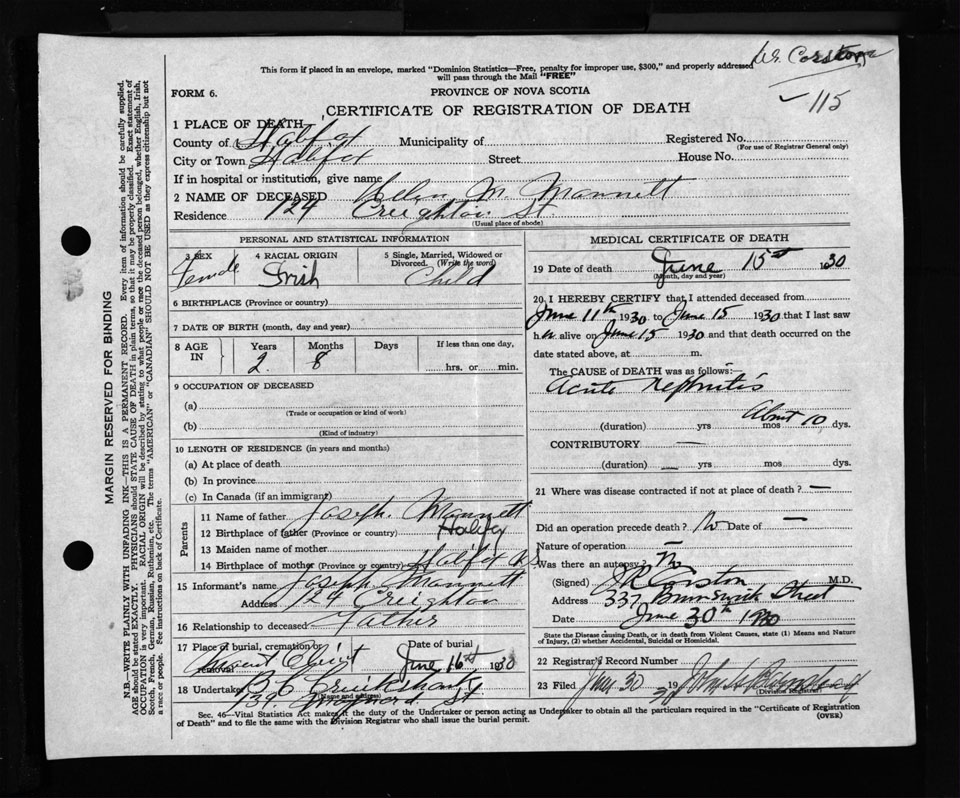 This form if placed in an envelope, marked "Dominion Statistics—Free, penalty for improper use, $300," and properly addressed
will pass through the Mail "FREE"
115
FORM 6.
PROVINCE OF NOVA SCOTIA
CERTIFICATE OF REGISTRATION OF DEATH
1 PLACE OF DEATH
County of Halifax Municipality of Registered No.
(For use of Registrar General only)
City or Town Halifax Street House No.
If in hospital or institution, give name
2 NAME OF DECEASED Helen M. Mannett
Residence 124 Creighton St.
(Usual place of abode)
PERSONAL AND STATISTICAL INFORMATION
3 SEX 4 RACIAL ORIGIN 5 Single, Married, Widowed or Divorced. (Write the word)
Female Irish Child
6 BIRTHPLACE (Province or country)
7 DATE OF BIRTH (month, day and year)
8 AGE IN Years Months Days If less than one day,
2 8 hrs. or min.
9 OCCUPATION OF DECEASED
(a)
(Trade or occupation or kind of work)
(b)
(Kind of industry)
10 LENGTH OF RESIDENCE (in years and months)
(a) At place of death
(b) In province
(c) In Canada (if an immigrant)
Parents
11 Name of father Joseph Mannett
12 Birthplace of father (Province or country) Halifax
13 Maiden name of mother
14 Birthplace of mother (Province or country) Halifax N.S.
15 Informant's name Joseph Mannett
Address 124 Creighton
16 Relationship to deceased Father
17 Place of burial, cremation or removal Date of burial
Mount Olivet June 16th 1930
18 Undertaker
(Name and address)
139 Maynard St
MEDICAL CERTIFICATE OF DEATH
19 Date of death June 15th 1930
(Month, day and year)
20 I HEREBY CERTIFY that I attended deceased from
June 11th 1930 to June 15 1930 that I last saw
her alive on June 15 1930 and that death occurred on the
date stated above, at m.
The CAUSE of DEATH was as follows:—
Acute Nephritis
About 10
(duration) yrs mos dys.
CONTRIBUTORY —
(duration) yrs mos dys.
21 Where was disease contracted if not at place of death? —
Did an operation precede death? No Date of —
Nature of operation —
Was there an autopsy? No
(Signed) M.D.
Address 337 Brunswick Street
Date June 30th 1930
State the Disease causing Death, or in death from Violent Causes, state (1) Means and Nature
of Injury, (2) whether Accidental, Suicidal or Homicidal.
22 Registrar's Record Number
23 Filed June 30 1930
(Division Registrar)
Sec. 46—Vital Statistics Act makes it the duty of the Undertaker or person acting as Undertaker to obtain all the particulars required in the "Certificate of Registration
of Death" and to file the same with the Division Registrar who shall issue the burial permit.
(OVER)
MARGIN RESERVED FOR BINDING
N.B.—WRITE PLAINLY WITH UNFADING INK—THIS IS A PERMANENT RECORD. Every item of information should be carefully supplied.
AGE should be stated EXACTLY. PHYSICIANS should STATE CAUSE OF DEATH in plain terms, so that it may be properly classified. Exact statement of
OCCUPATION is very important. RACIAL ORIGIN will be described by stating to what people or race the deceased person belonged, whether English, Irish,
Scotch, French, German, Russian, Ruthenian, etc. The terms "AMERICAN" or "CANADIAN" SHOULD NOT BE USED as they express citizenship but not
a race or people. Fee instructions on back of Certificate.